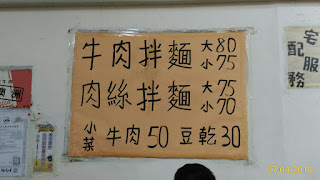 牛肉拌麵 大80 小75
肉絲拌麵 大75 小70
小菜 牛肉50 豆乾30
宅配服務